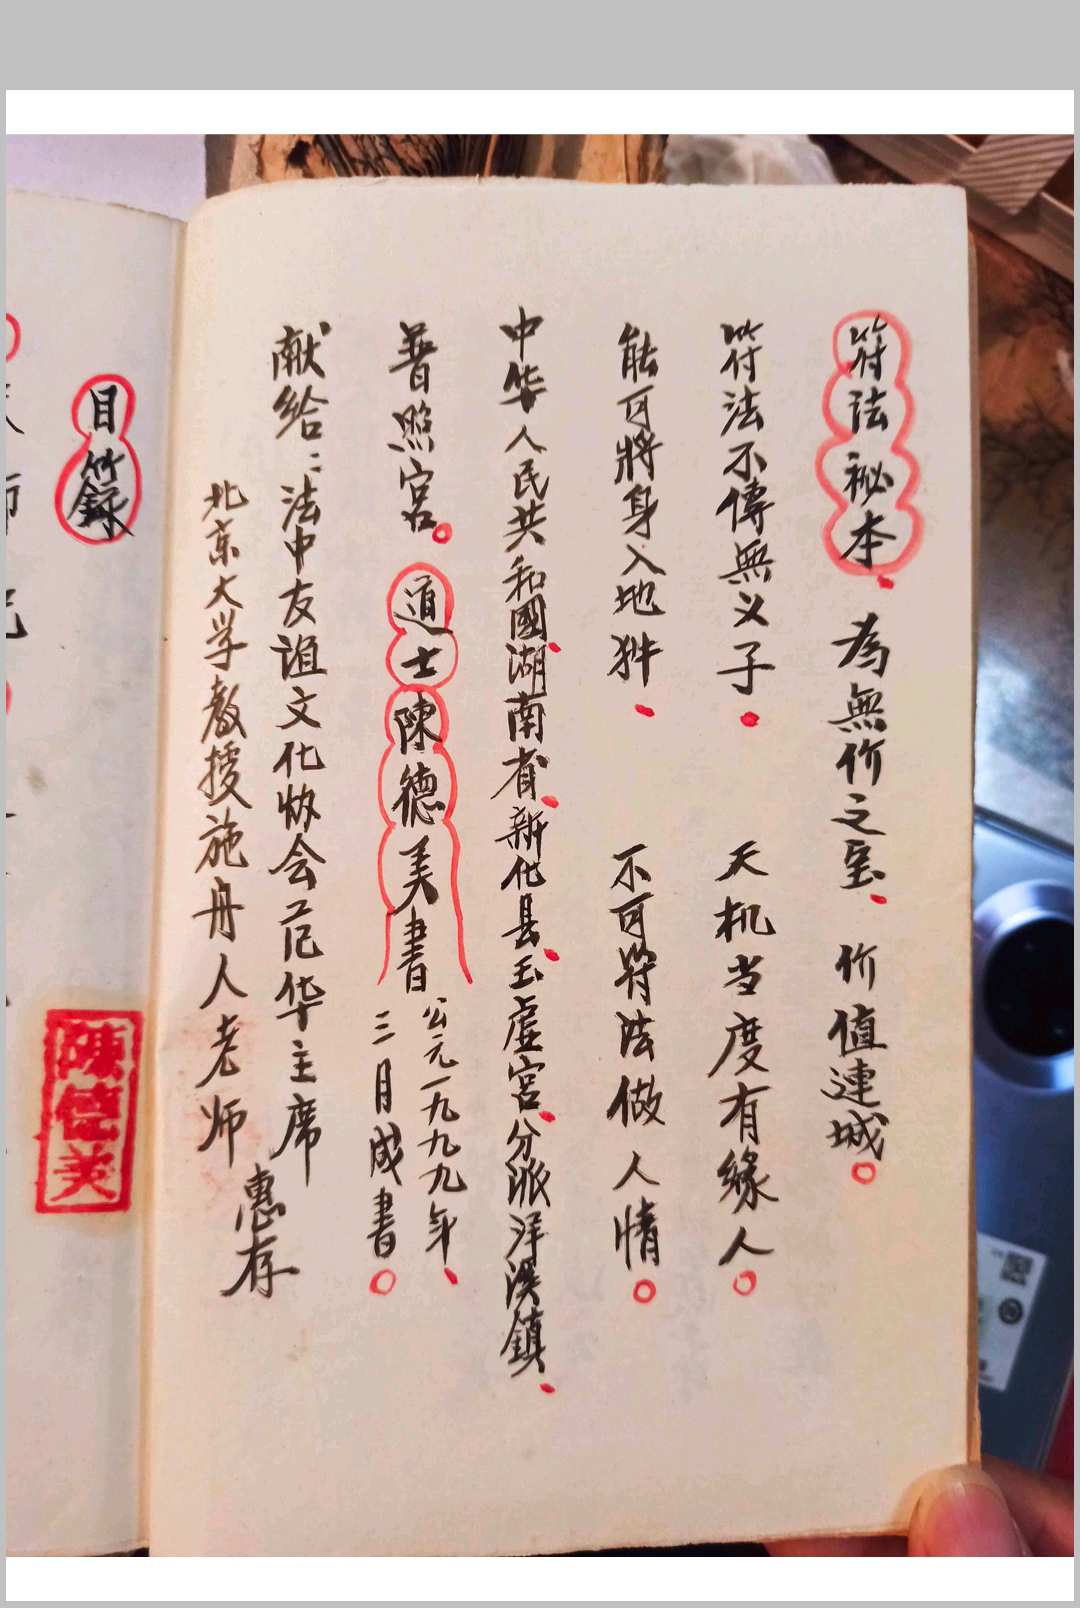 符法秘本、為無价之宝、价值連城。
符法不傳無义子、天机当度有緣人。
能可將身入地狱、不可符法做人情。
中华人民共和國、湖南省、新化县、玉虚宮、分派洋溪鎮、
普照宮。道士陳德美書
公元一九九九年、
三月成書。
献给：法中友谊文化协会范华主席
北京大学教授施舟人老师
惠存
目錄
陳德美